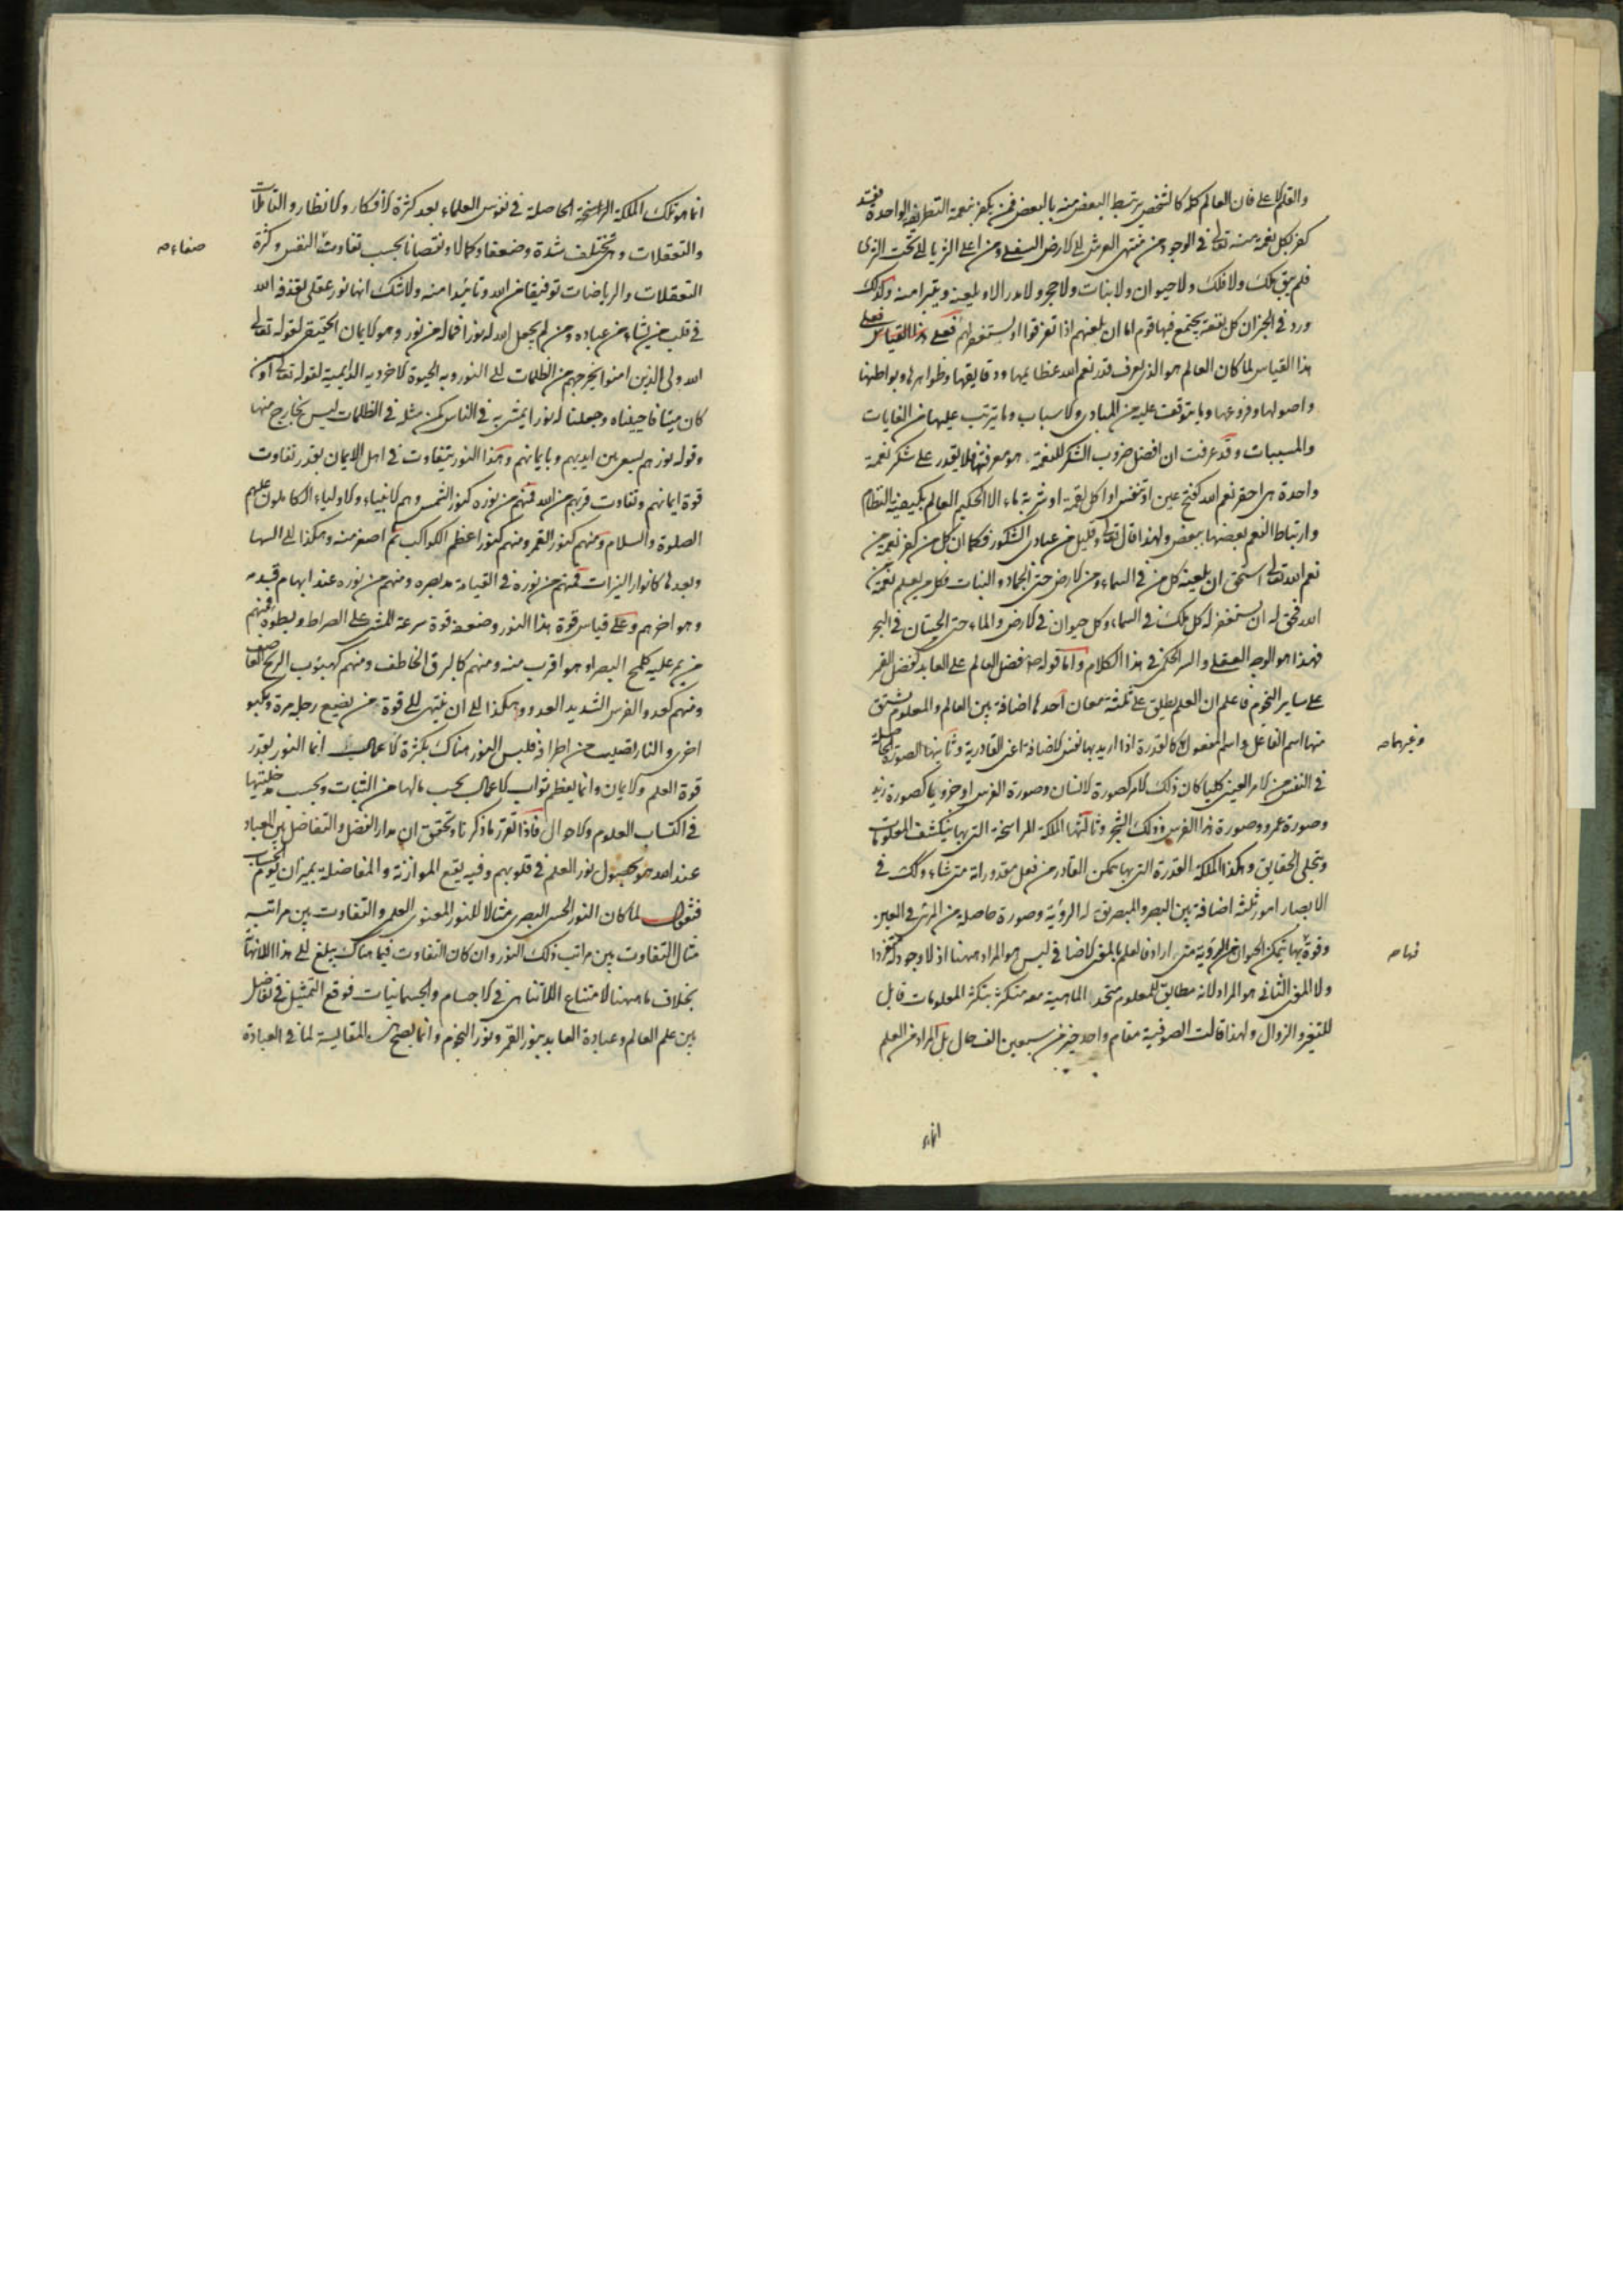 والقلم الاعلى فان العالم كله كالشخص يرتبط البعض منه بالبعض فمن يكفر نعمة التطريفة الواحدة فقد
كفر كل نعمة منه تعالى في الوجود من منتهى العرش الى الارض السفلى ومن اعلى الثريا الى تحت الثرى
فلم يبق ملك ولا فلك ولا حيوان ولا نبات ولا حجر ولا مدر الا ويلعنه ويتبرا منه وكذلك
ورد في الخبر ان كل بقعة يجتمع فيها قوم اما ان يلعنهم اذا تفرقوا او يستغفر لهم فعلى
هذا القياس لما كان العالم هو الذي يعرف قدر نعم الله عظايمها ودقايقها وظواهرها وبواطنها
واصولها وفروعها وما يتوقف عليه من المبادي والاسباب وما يترتب عليها من الغايات
والمسببات وقد عرفت ان افضل ضروب الشكر للنعمة هو معرفتها فلا يقدر على شكر نعمة
واحدة هي احقر نعم الله كفتح عين او تنفس او اكل لقمة او شربة ماء الا الحكيم العالم بكيفية النظام
وارتباط النعم بعضها ببعض ولهذا قال تعالى وقليل من عبادي الشكور فكما ان كل من كفر نعمة من
نعم الله تعالى استحق ان يلعنه كل من في السماء ومن في الارض حتى الجماد والنبات فكل من يعلم نعمة
الله فحق له ان يستغفر له كل ملك في السماء وكل حيوان في الارض والماء حتى الحيتان في البحر
فهذا هو الوجه العقلي والسر الحكمي في هذا الكلام واما قوله ص فضل العالم على العابد كفضل القمر
على ساير النجوم فاعلم ان العلم يطلق على ثلثة معان احدها اضافة بين العالم والمعلوم يشتق
منها اسم الفاعل واسم المفعول كالقدرة اذا اريد بها نفس الاضافة اعني القادرية وثانيها الصورة الحاصلة
وغيرهما ص
في النفس من الامر العيني كليا كان ذلك الامر كصورة الانسان وصورة الفرس او جزويا كصورة زيد
وصورة عمرو وصورة هذا الفرس وذلك الشجر وثالثها الملكة الراسخة التي بها ينكشف المعلومات
ويتجلى الحقايق وهكذا الملكة القدرة التي بها يمكن القادر من فعل مقدوراته متى شاء وكك في
الابصار امور ثلثة اضافة بين البصر والمبصر يق له الرؤية وصورة حاصلة من المرئي في العين
وقوة بها يتمكن الحيوان من الرؤية متى اراد فالعلم بالمعنى الاضافي ليس هو المراد ههنا اذ لا وجود له منفردا
فهاه ص
ولا المعنى الثاني هو المراد لانه مطابق للمعلوم متحد الماهية معه متكثر بتكثر المعلومات قابل
للتغير والزوال ولهذا قالت الصوفية مقام واحد خير من سبعين الف حال بل المراد من العلم
انما هو
انما هو تلك الملكة الراسخة الحاصلة في نفوس العلماء بعد كثرة الافكار والانظار والتاملات
والتعقلات وهي تختلف شدة وضعفا وكمالا ونقصانا بحسب تفاوت النفس وكثرة
صفاء ص
التعقلات والرياضات توفيقا من الله وتائيدا منه ولا شك انها نور عقلي يقذفه الله
في قلب من يشاء من عباده ومن لم يجعل الله له نورا فما له من نور وهو الايمان الحقيقي لقوله تعالى
الله ولي الذين امنوا يخرجهم من الظلمات الى النور وبه الحيوة الاخروية الدايمية لقوله تعالى اومن
كان ميتا فاحييناه وجعلنا له نورا يمشي به في الناس كمن مثله في الظلمات ليس بخارج منها
وقوله نورهم يسعى بين ايديهم وبايمانهم وهذا النور يتفاوت في اهل الايمان بقدر تفاوت
قوة ايمانهم وتفاوت قربهم من الله فمنهم من نوره كنور الشمس وهم الانبياء والاولياء الكاملون عليهم
الصلوة والسلام ومنهم كنور القمر ومنهم كنور اعظم الكواكب ثم اصغر منه وهكذا الى السها
وبعدها كانوار النيرات فمنهم من نوره في القيامة مد بصره ومنهم من نوره عند ابهام قدمه
وهو اخرهم وعلى قياس قوة هذا النور وضعفه قوة سرعة المشي على الصراط وبطؤه فمنهم
من يمر عليه كلمح البصر او هو اقرب منه ومنهم كالبرق الخاطف ومنهم كهبوب الريح العاصف
ومنهم كعدو الفرس الشديد العدو وهكذا الى ان ينتهي الى قوة من يضع رجله مرة ويكبو
اخرى والنار تصيب من اطرافه فليس النور هناك بكثرة الاعمال انما النور بقدر
قوة العلم والايمان وانما يعظم ثواب الاعمال بحسب مالها من النيات وبحسب مدخليتها
في اكتساب العلوم والاحوال فاذا تقرر ما ذكرنا وتحقق ان مدار الفضل والتفاضل بين العباد
عند الله هو حصول نور العلم في قلوبهم وفيه يقع الموازنة والمفاضلة بميزان يوم الحساب
فنقول لما كان النور الحسي البصري مثالا للنور المعنوي العلمي والتفاوت بين مراتبه
مثال التفاوت بين مراتب ذلك النور وان كان التفاوت فيما هناك يبلغ الى هذا اللانهاية
بخلاف ما ههنا لامتناع اللاتناهي في الاجسام والجسمانيات فوقع التمثيل في تفاضل
بين علم العالم وعبادة العابد بنور القمر ونور النجوم وانما يصح هذه المقايسة لما في العبادة